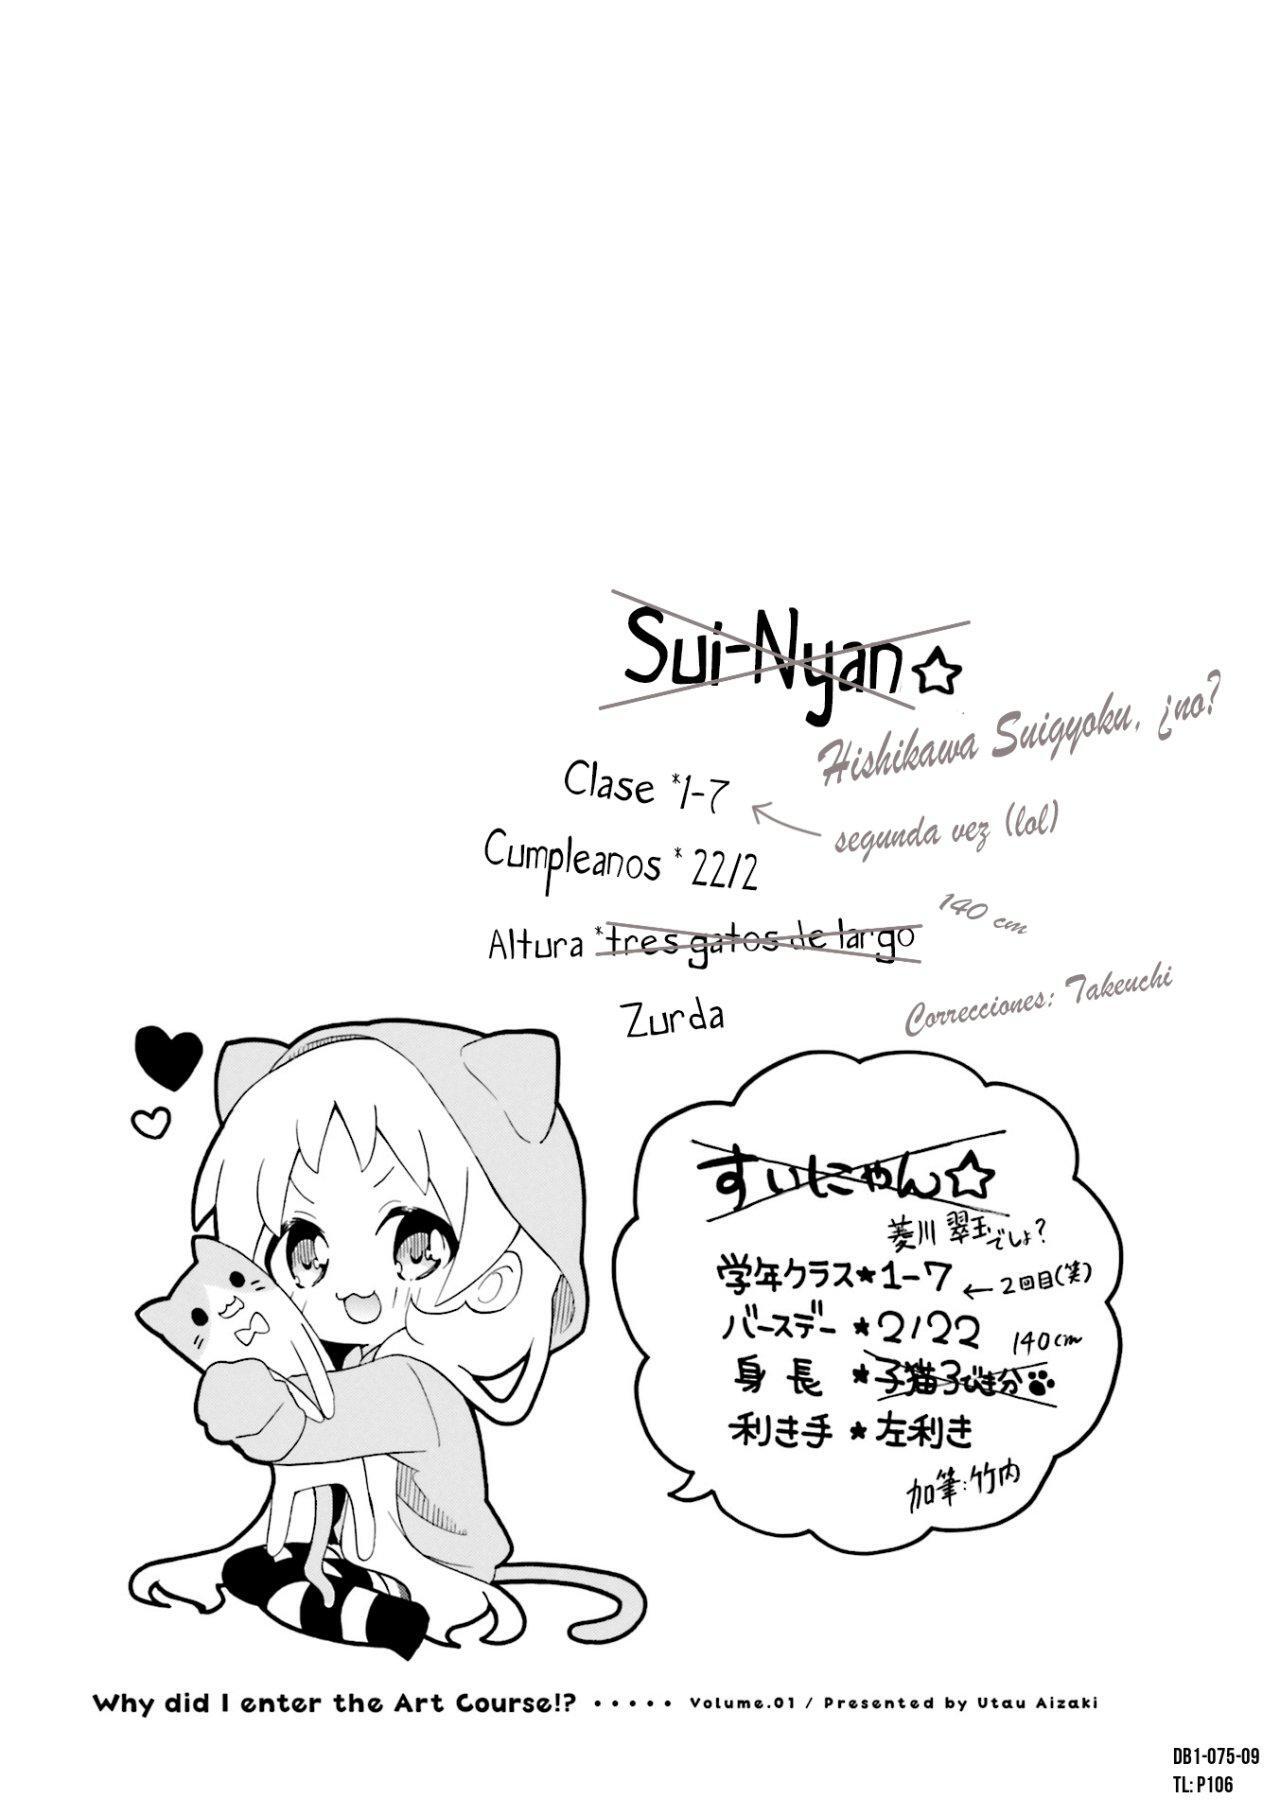 Sui-Nyan☆
Hishikawa Suigyoku, ¿no?
Clase *1-7
segunda vez (lol)
Cumpleanos * 22/2
Altura *tres gatos de largo
140 cm
Zurda
Correcciones: Takeuchi
すいにゃん☆
菱川 翠玉でしょ?
学年クラス★1-7 ←2回目(笑)
バースデー ★2/22
140cm
身長 ★子猫3びき分
利き手 ★左利き
加筆:竹内
Why did I enter the Art Course!? ・・・・・ Volume.01 / Presented by Utau Aizaki
DB1-075-09
TL: P106